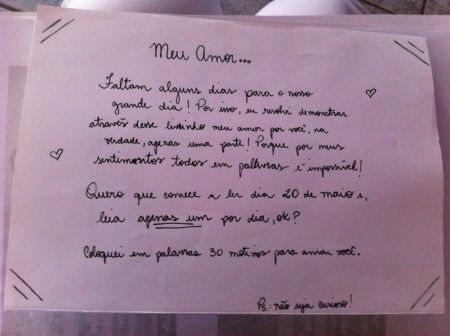 Meu Amor...
Faltam alguns dias para o nosso
grande dia! Por isso, eu resolvi demonstrar
através desse livrinho meu amor por você, na
verdade, apenas uma parte! Porque por meus
sentimentos todos em palavras é impossível!
Quero que comece a ler dia 20 de maio e,
leia apenas um por dia, ok?
Coloquei em palavras 30 motivos para amar você.
Ps: não seja curioso!